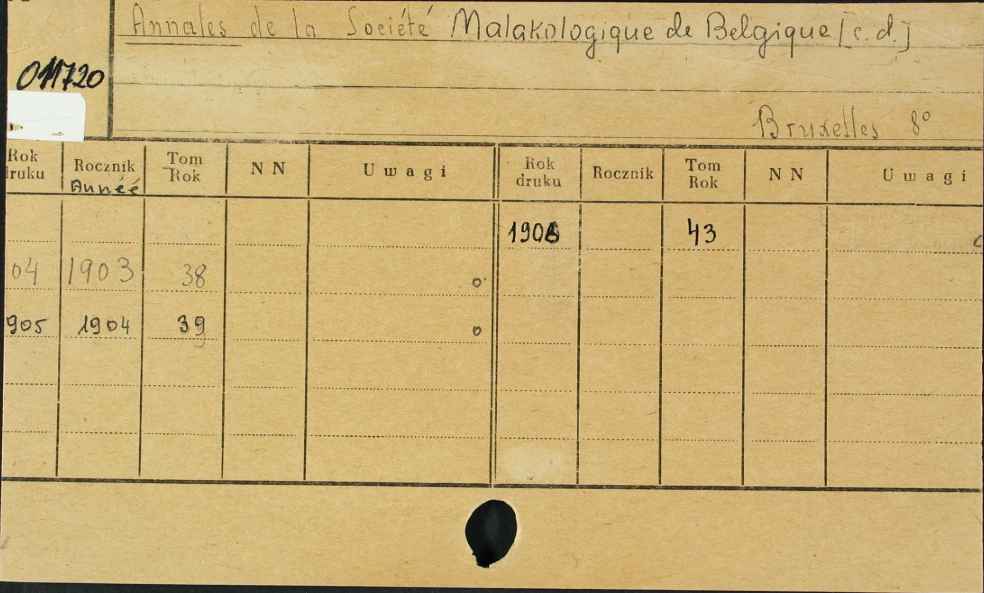 Annales de la Société Malakologique de Belgique [c.d.]
011720
Bruxelles 8°
Rok druku Rocznik Année Tom Rok NN Uwagi Rok druku Rocznik Tom Rok NN Uwagi
1906 43
04 1903 38 o
905 1904 39 o
9